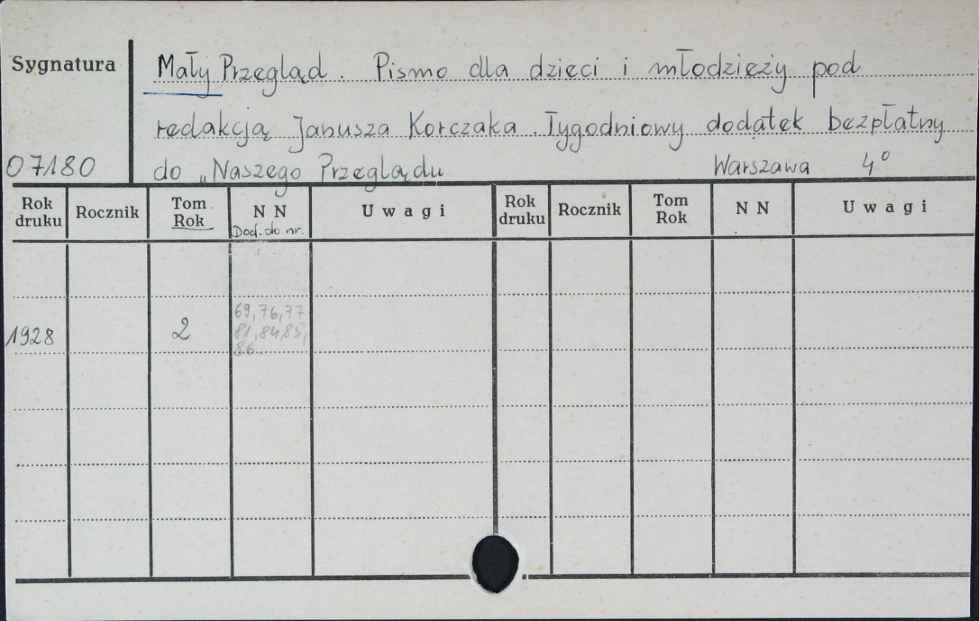 Sygnatura
Mały Przegląd. Pismo dla dzieci i młodzieży pod
redakcją Janusza Korczaka. Tygodniowy dodatek bezpłatny
07180
do „Naszego Przeglądu Warszawa 4°
Rok druku Rocznik Tom Rok N N Uwagi Rok druku Rocznik Tom Rok N N Uwagi
Dod. do nr.
69, 76, 77
1928 2 81, 84, 85,
86